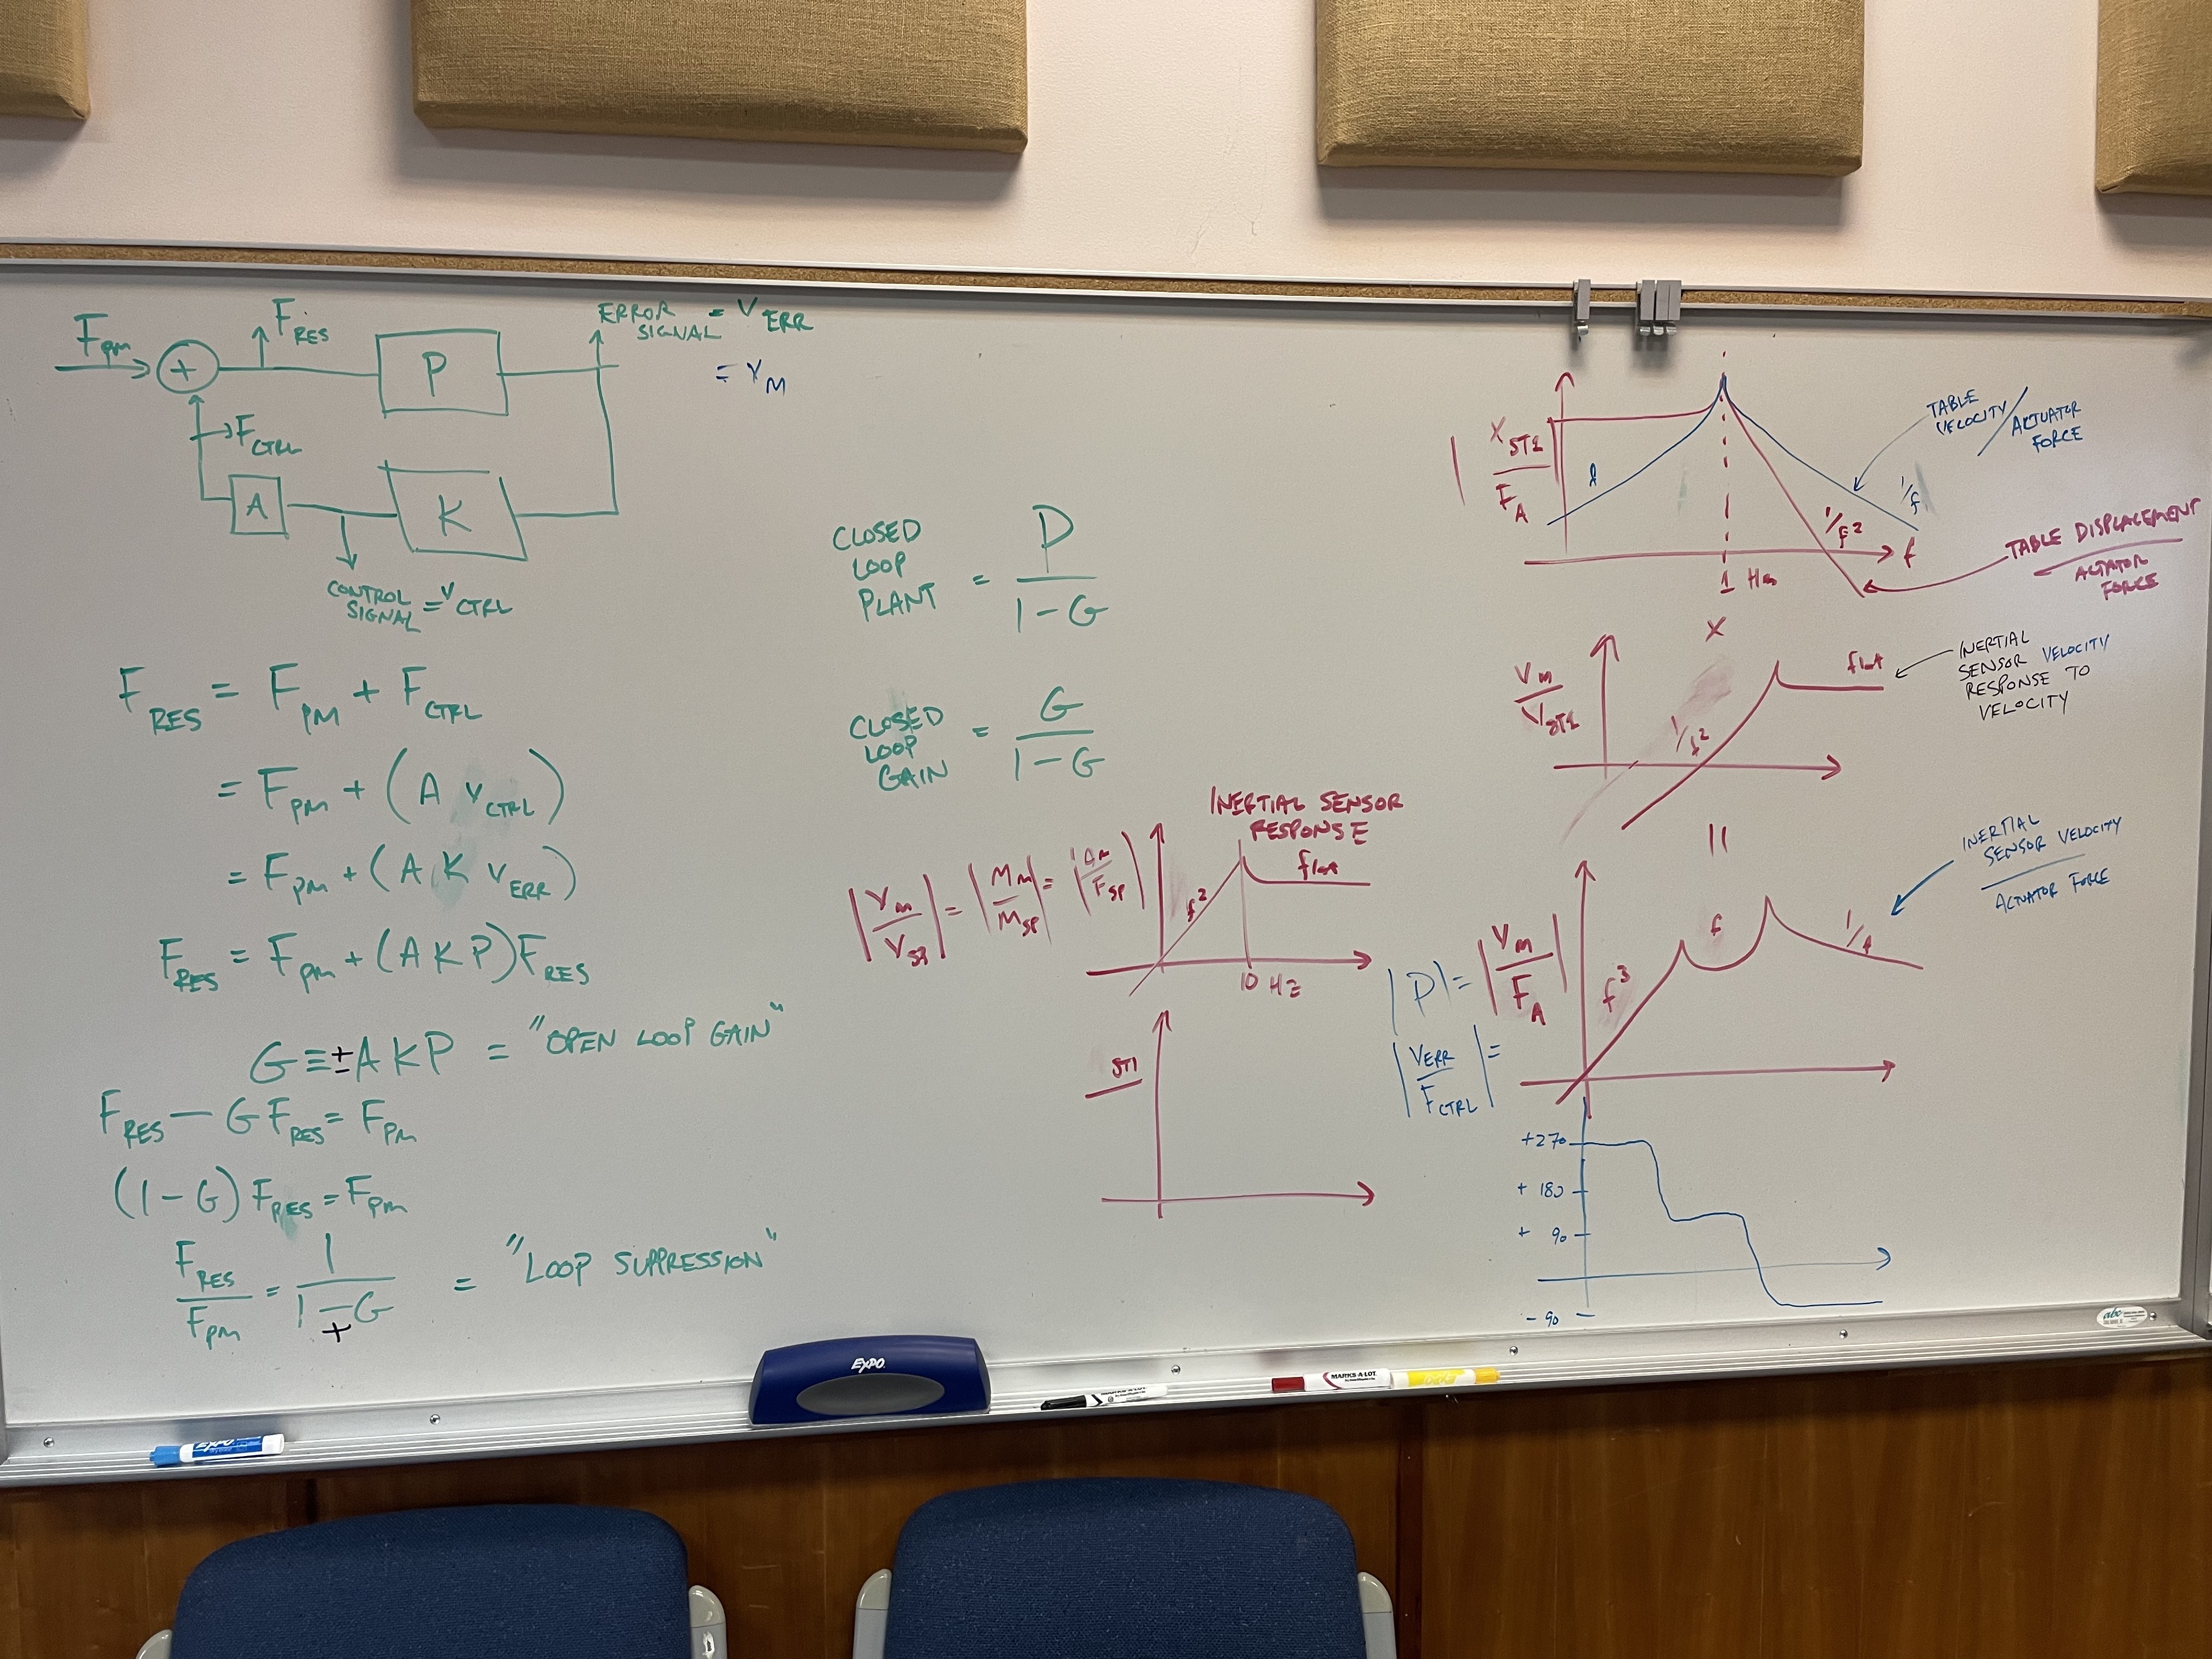 F_pm
+
F_RES
P
ERROR SIGNAL = V_ERR
= V_M
F_CTRL
A
K
CONTROL SIGNAL = V_CTRL
F_RES = F_PM + F_CTRL
= F_PM + (A V_CTRL)
= F_PM + (A K V_ERR)
F_RES = F_PM + (A K P) F_RES
G ≡ ± A K P = "OPEN LOOP GAIN"
F_RES — G F_RES = F_PM
(1 - G) F_RES = F_PM
F_RES / F_PM = 1 / 1 - G = "LOOP SUPPRESSION"
+
CLOSED LOOP PLANT = P / 1 - G
CLOSED LOOP GAIN = G / 1 - G
INERTIAL SENSOR RESPONSE
|V_M / V_SP| = |M_M / M_SP| =
f²
flat
10 Hz
ST1
|X_ST1 / F_A|
1/f
1/f²
f
1 Hz
TABLE VELOCITY / ACTUATOR FORCE
TABLE DISPLACEMENT
ACTATOR FORCE
X
V_M / V_ST1
1/f²
flat
INERTIAL
SENSOR VELOCITY
RESPONSE TO
VELOCITY
=
|P| = |V_M / F_A|
|V_ERR / F_CTRL| =
f³
f
1/f
INERTIAL
SENSOR VELOCITY
ACTUATOR FORCE
+270
+ 180
+ 90
- 90
abc
EXPO
MARKS A LOT
EXPO